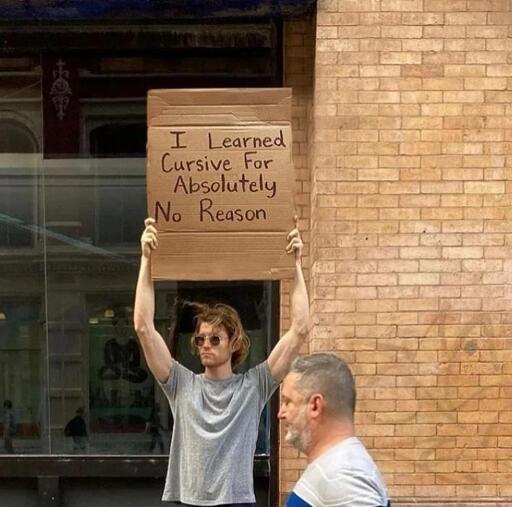 I Learned
Cursive For
Absolutely
No Reason